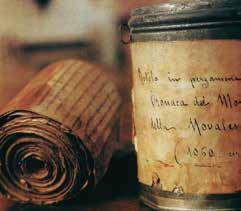 Rotolo in pergamena
Cronaca del Mo
della Novales
(1060 c